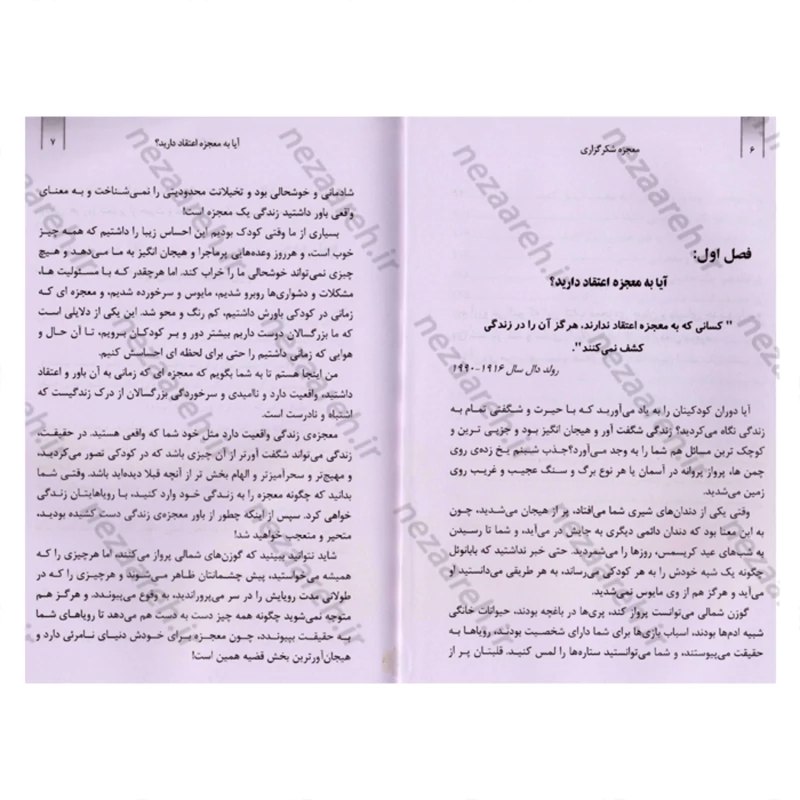 ۶
معجزه شکرگزاری
فصل اول:
آیا به معجزه اعتقاد دارید؟
" کسانی که به معجزه اعتقاد ندارند، هرگز آن را در زندگی
کشف نمی‌کنند".
رولد دال سال ۱۹۱۶-۱۹۹۰
آیا دوران کودکیتان را به یاد می‌آورید که با حیرت و شگفتی تمام به
زندگی نگاه می‌کردید؟ زندگی شگفت آور و هیجان انگیز بود و جزیی ترین و
کوچک ترین مسائل هم شما را به وجد می‌آورد؟جذب شبنم یخ زده‌ی روی
چمن ها، پرواز پروانه در آسمان یا هر نوع برگ و سنگ عجیب و غریب روی
زمین می‌شدید.
وقتی یکی از دندان‌های شیری شما می‌افتاد، پر از هیجان می‌شدید، چون
به این معنا بود که دندان دائمی دیگری به جایش در می‌آید، و شما تا رسیدن
به شب‌های عید کریسمس، روزها را می‌شمردید. حتی خبر نداشتید که بابانوئل
چگونه یک شبه خودش را به هر کودکی می‌رساند، به هر طریقی می‌دانستید او
می‌آید و هرگز هم از وی مایوس نمی‌شدید.
گوزن شمالی می‌توانست پرواز کند، پری‌ها در باغچه بودند، حیوانات خانگی
شبیه آدم‌ها بودند، اسباب بازی‌ها برای شما دارای شخصیت بودند، رویاها به
حقیقت می‌پیوستند، و شما می‌توانستید ستاره‌ها را لمس کنید. قلبتان پر از
آیا به معجزه اعتقاد دارید؟
۷
شادمانی و خوشحالی بود و تخیلاتت محدودیتی را نمی‌شناخت و به معنای
وقعی باور داشتید زندگی یک معجزه است!
بسیاری از ما وقتی کودک بودیم این احساس زیبا را داشتیم که همه چیز
خوب است، و هرروز وعده‌هایی پرماجرا و هیجان انگیز به ما می‌دهد و هیچ
چیزی نمی‌تواند خوشحالی ما را خراب کند. اما هرچقدر که با مسئولیت ها،
مشکلات و دشواری‌ها روبرو شدیم، مایوس و سرخورده شدیم، و معجزه ای که
زمانی در کودکی باورش داشتیم، کم رنگ و محو شد. این یکی از دلایلی است
که ما بزرگسالان دوست داریم بیشتر دور و بر کودکان برویم، تا آن حال و
هوایی که زمانی داشتیم را حتی برای لحظه ای احساسش کنیم.
من اینجا هستم تا به شما بگویم که معجزه ای که زمانی به آن باور و اعتقاد
داشتید، واقعیت دارد و ناامیدی و سرخوردگی بزرگسالان از درک زندگیست که
اشتباه و نادرست است.
معجزه‌ی زندگی واقعیت دارد مثل خود شما که واقعی هستید. در حقیقت،
زندگی می‌تواند شگفت آورتر از آن چیزی باشد که در کودکی تصور می‌کردید،
و مهیج‌تر و سحرآمیزتر و الهام بخش تر از آنچه قبلا دیده‌اید باشد. وقتی شما
بدانید که چگونه معجزه را به زندگی خود وارد کنید، با رویاهایتان زندگی
خواهی کرد. سپس از اینکه چطور از باور معجزه‌ی زندگی دست کشیده بودید،
متحیر و متعجب خواهید شد!
شاید نتوانید ببینید که گوزن‌های شمالی پرواز می‌کنند، اما هرچیزی را که
همیشه می‌خواستید، پیش چشمانتان ظاهر می‌شوند و هرچیزی را که در
طولانی مدت رویایش را در سر می‌پروراندید، به وقوع می‌پیوندد. و هرگز هم
متوجه نمی‌شوید چگونه همه چیز دست به دست هم می‌دهد تا رویاهای شما
به حقیقت بپیوندد، چون معجزه برای خودش دنیای نامرئی دارد و
هیجان‌آورترین بخش قضیه همین است!
nezaareh.ir